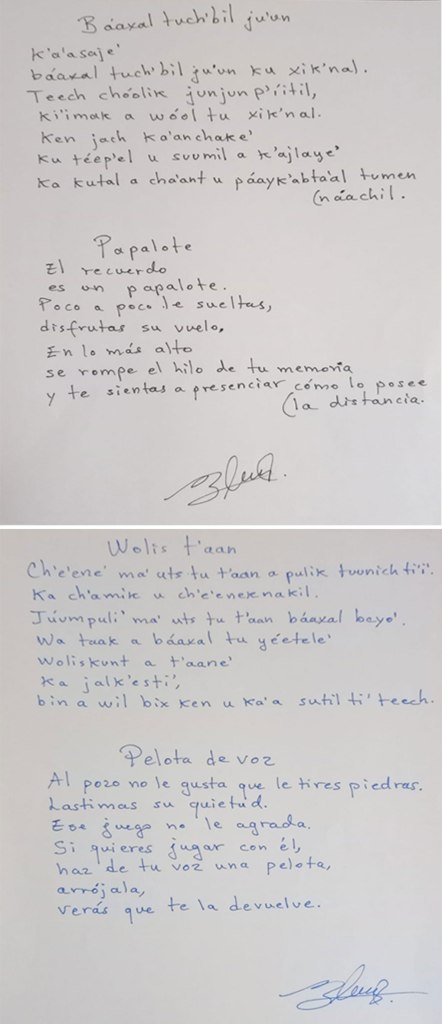 Báaxal tuch'bil ju'un
K'a'asaje'
báaxal tuch'bil ju'un ku xik'nal.
Teech choolik junjunp'íitil,
ki'imak a wóol tu xik'nal.
Ken jach ka'anchake'
ku téep'el u suumil a k'ajlaye'
ka kutal a cha'ant u páayk'abta'al tumen
(náachil.
Papalote
El recuerdo
es un papalote.
Poco a poco le sueltas,
disfrutas su vuelo.
En lo más alto
se rompe el hilo de tu memoria
y te sientas a presenciar cómo lo posee
(la distancia.
Wolis t'aan
Ch'e'ene' ma' uts tu t'aan a pulik tuunich ti'i'.
Ka ch'amik u ch'e'eneknakil.
Júumpuli' ma' uts tu t'aan báaxal beyo'.
Wa taak a báaxal tu yéetele'
woliskunt a t'aane'
ka jalk'esti',
bin a wil bix ken u ka'a sutil ti' teech.
Pelota de voz
Al pozo no le gusta que le tires piedras.
Lastimas su quietud.
Ese juego no le agrada.
Si quieres jugar con él,
haz de tu voz una pelota,
arrójala,
verás que te la devuelve.